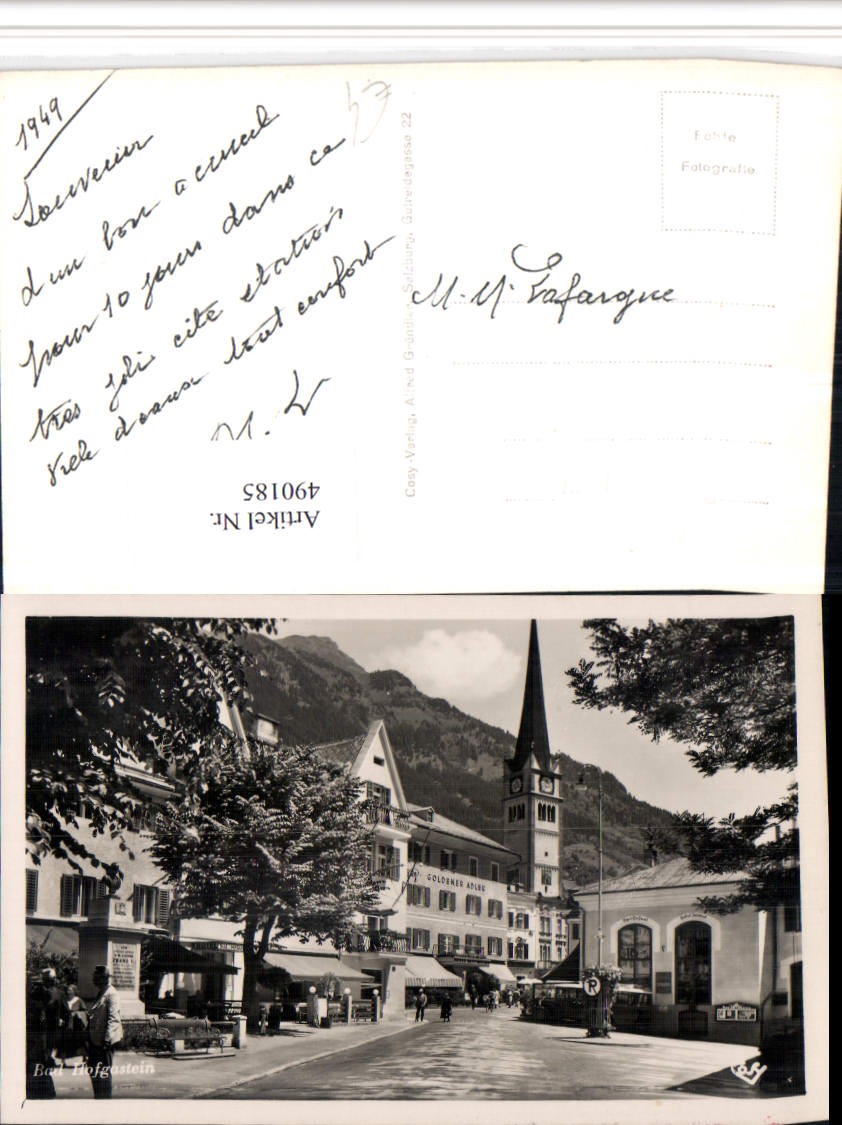 1949
Souvenir
d'un bon accueil
pour 10 jours dans ce
très joli cité station
dans tout confort
M. W
Echte
Fotografie
Cosy-Verlag, Alfred Gründler, Salzburg, Getreidegasse 22
M. M. Lafargue
Artikel Nr.
490185
GOLDENER ADLER
Bad Hofgastein
P
Cosy